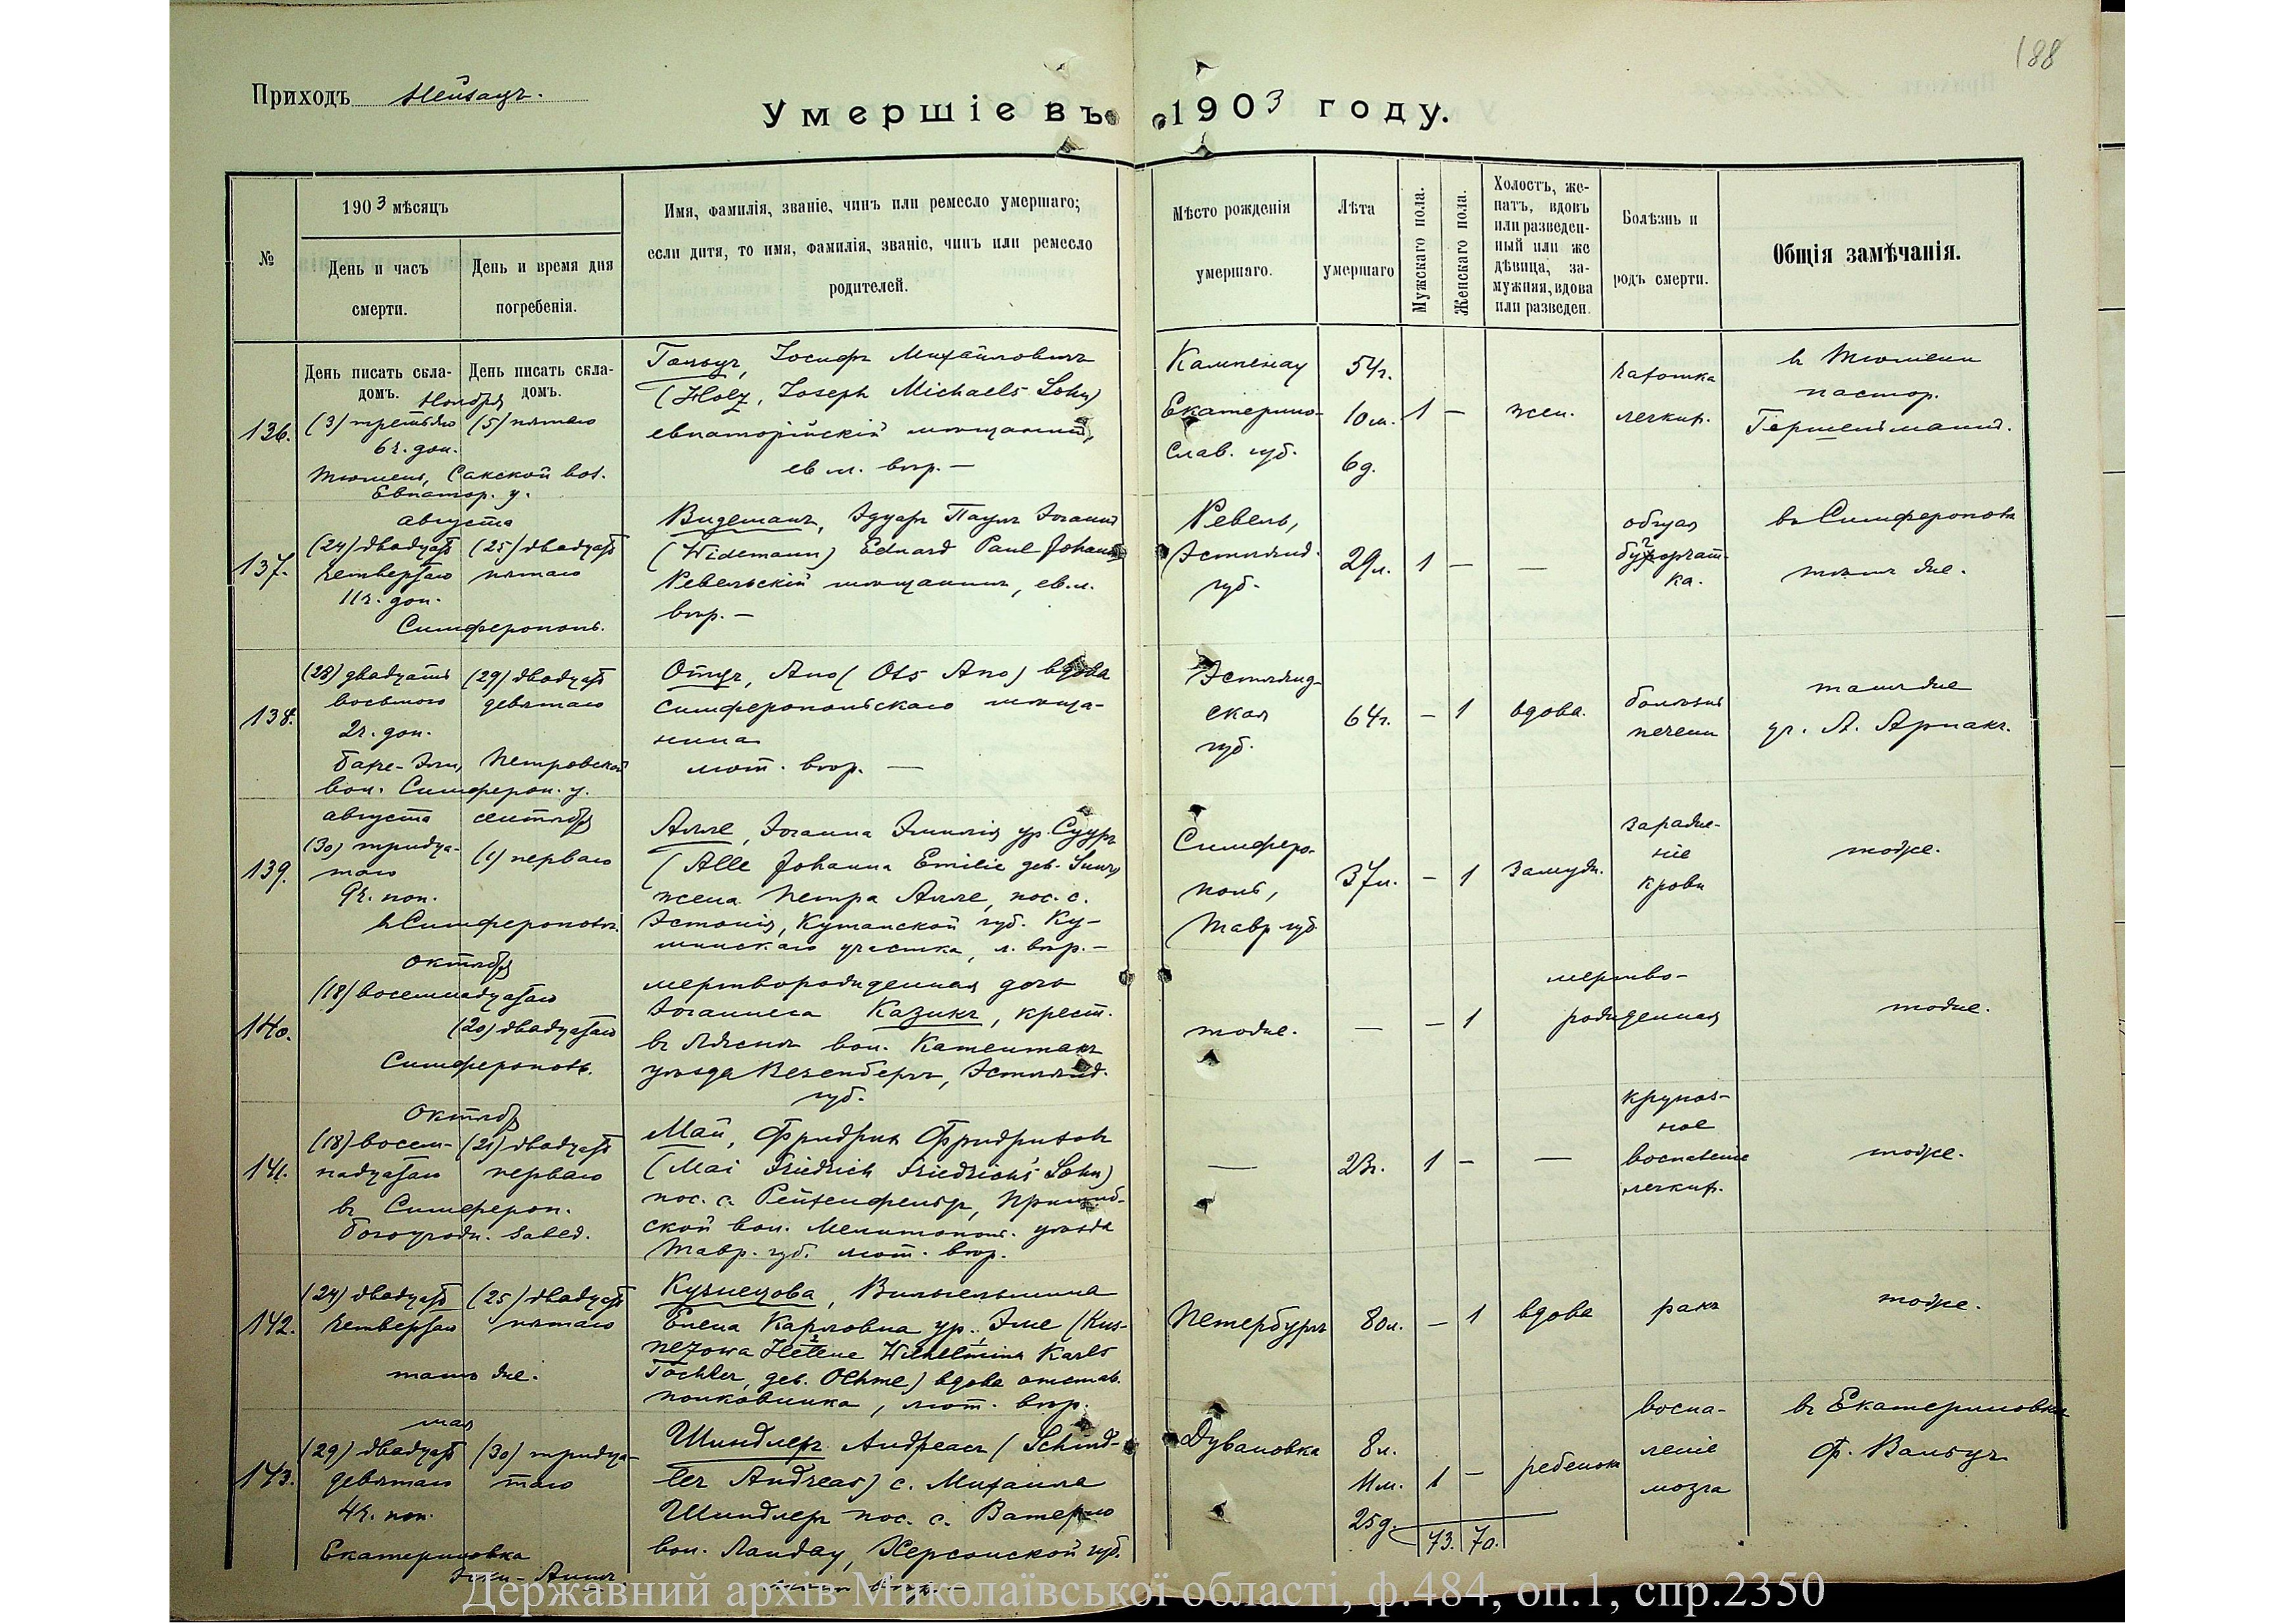 188
Приходъ Нейзацъ.
Умершіе въ 1903 году.
№
1903 мѣсяцъ
День и часъ смерти.
День и время дня погребенія.
Имя, фамилія, званіе, чинъ или ремесло умершаго;
если дитя, то имя, фамилія, званіе, чинъ или ремесло
родителей.
Мѣсто рожденія
умершаго.
Лѣта
умершаго
Мужскаго пола.
Женскаго пола.
Холостъ, же-
натъ, вдовъ
или разведен-
ный или же
дѣвица, за-
мужняя, вдова
или разведен.
Болѣзнь и
родъ смерти.
Общія замѣчанія.
День писать скла-
домъ.
День писать скла-
домъ.
Ноября
136.
(3) третьяго
6 ч. доп.
(5) пятаго
Сакской вол.
Евпатор. у.
Гольцъ, Іосифъ Михайловичъ
(Holz, Joseph Michaels Sohn)
евпаторійскій мѣщанинъ,
ев. л. вѣр. —
Кампенау
Екатерино-
слав. губ.
54 г.
10 м.
6 д.
1 —
жен.
чахотка
легкихъ.
въ
пастор.
137.
августа
(24) двадцать
четвертаго
11 ч. доп.
(25) двадцать
пятаго
Симферополь.
Видеманъ, Эдуардъ Пауль Іоганнъ
(Widemann) Eduard Paul Johann
Ревельскій мѣщанинъ, ев. л.
вѣр. —
Ревель,
Эстлянд.
губ.
29 л.
1 —
—
общая
бугорчат-
ка.
въ Симферополѣ
тѣмъ же.
138.
(28) двадцать
восьмого
2 ч. доп.
(29) двадцать
девятаго
Петровской
вол. Симфероп. у.
Отцъ, Ано (Ots Ano) вдова
симферопольскаго мѣща-
нина
лют. вѣр. —
Эстлянд-
ская
губ.
64 г.
— 1
вдова.
болѣзнь
печени
тамъ же
139.
августа
сентября
(30) тридца-
таго
9 ч. поп.
(1) перваго
въ Симферополѣ.
Алле, Іоганна Эмилія ур. Сууръ
(Alle Johanna Emilie geb. Suur)
жена Петра Алле, пос. с.
Эстонія, Кутаиской губ. Ку-
участка, л. вѣр. —
Симферо-
поль,
Тавр. губ.
37 л.
— 1
замужн.
зараже-
ніе
крови
тоже.
140.
октября
(18) восемнадцатаго
(20) двадцатаго
Симферополь.
мертворожденная дочь
Іоганнеса Казикъ, крест.
вол.
уѣзда Везенбергъ, Эстлянд.
губ.
тоже.
—
— 1
мертво-
рожденная
тоже.
141.
октября
(18) восем-
надцатаго
(21) двадцать
перваго
въ Симфероп.
богоугодн. завед.
Май, Фридрихъ Фридриховъ
(Mai Friedrich Friedrichs Sohn)
пос. с. Рейхенфельдъ, Пришиб-
ской вол. Мелитопол. уѣзда
Тавр. губ. лют. вѣр.
—
23 г.
1 —
—
крупоз-
ное
воспаленіе
легкихъ.
тоже.
142.
(24) двадцать
четвертаго
(25) двадцать
пятаго
тамъ же.
Кузнецова, Вильгельмина
Елена Карловна ур. Эме (Kus-
nezowa Helene Wilhelmina Karls
Tochter, geb. Oehme) вдова отстав.
полковника, лют. вѣр.
Петербургъ
80 л.
— 1
вдова
ракъ
тоже.
143.
мая
(29) двадцать
девятаго
4 ч. поп.
(30) тридца-
таго
Екатериновка
Шиндлеръ Андреасъ (Schind-
ler Andreas) с. Михаила
Шиндлеръ пос. с. Ватерло
вол. Ландау, Херсонской губ.
Дувановка
8 л.
11 м.
25 д.
1 —
ребенокъ
воспа-
леніе
мозга
въ Екатериновкѣ
Ф. Вальцъ
73. 70.
Державний архів Миколаївської області, ф.484, оп.1, спр.2350